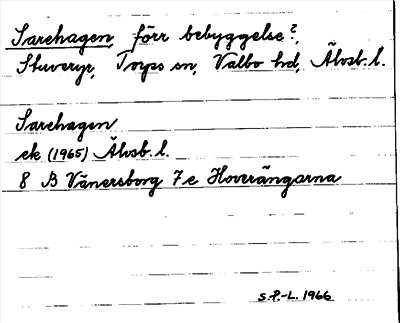 Sarehagen, förr bebyggelse?,
Stuveryr, Torps sn, Valbo hd, Älvsb. l.
Sarehagen
ek (1965) Älvsb. l.
8 B Vänersborg 7e Hoverängarna
S.P.-L. 1966